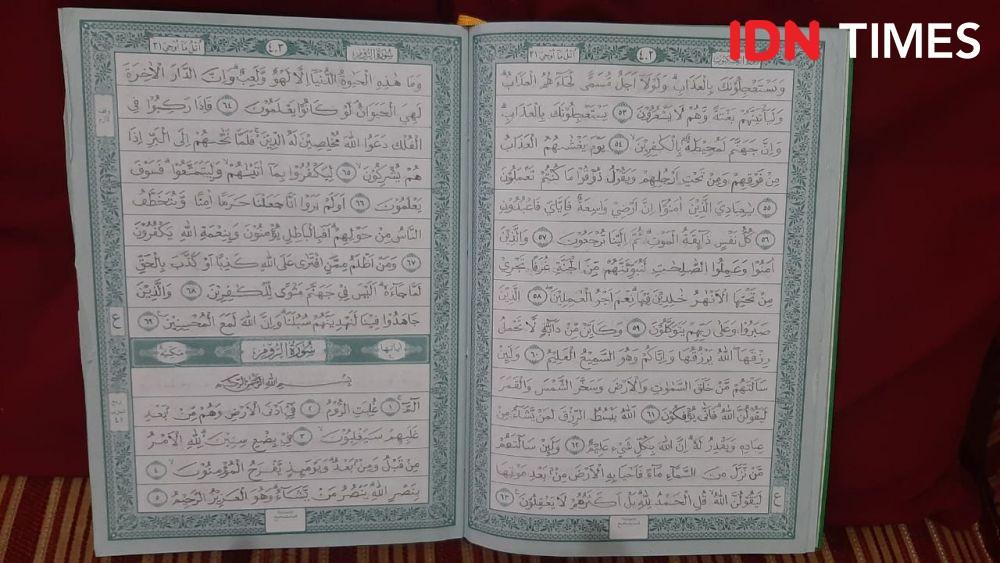 IDN TIMES
٤٠٢
وَيَسْتَعْجِلُوْنَكَ بِالْعَذَابِۗ وَلَوْلَآ اَجَلٌ مُّسَمًّى لَّجَاۤءَهُمُ الْعَذَابُۗ
وَلَيَأْتِيَنَّهُمْ بَغْتَةً وَّهُمْ لَا يَشْعُرُوْنَ ٥٣ يَسْتَعْجِلُوْنَكَ بِالْعَذَابِۗ
وَاِنَّ جَهَنَّمَ لَمُحِيْطَةٌ ۢ بِالْكٰفِرِيْنَۙ ٥٤ يَوْمَ يَغْشٰىهُمُ الْعَذَابُ
مِنْ فَوْقِهِمْ وَمِنْ تَحْتِ اَرْجُلِهِمْ وَيَقُوْلُ ذُوْقُوْا مَا كُنْتُمْ تَعْمَلُوْنَ
٥٥ يٰعِبَادِيَ الَّذِيْنَ اٰمَنُوْٓا اِنَّ اَرْضِيْ وَاسِعَةٌ فَاِيَّايَ فَاعْبُدُوْنِ
٥٦ كُلُّ نَفْسٍ ذَاۤىِٕقَةُ الْمَوْتِۗ ثُمَّ اِلَيْنَا تُرْجَعُوْنَ ٥٧ وَالَّذِيْنَ
اٰمَنُوْا وَعَمِلُوا الصّٰلِحٰتِ لَنُبَوِّئَنَّهُمْ مِّنَ الْجَنَّةِ غُرَفًا تَجْرِيْ
مِنْ تَحْتِهَا الْاَنْهٰرُ خٰلِدِيْنَ فِيْهَاۗ نِعْمَ اَجْرُ الْعٰمِلِيْنَۖ ٥٨ الَّذِيْنَ
صَبَرُوْا وَعَلٰى رَبِّهِمْ يَتَوَكَّلُوْنَ ٥٩ وَكَاَيِّنْ مِّنْ دَاۤبَّةٍ لَّا تَحْمِلُ
رِزْقَهَاۖ اللّٰهُ يَرْزُقُهَا وَاِيَّاكُمْ وَهُوَ السَّمِيْعُ الْعَلِيْمُ ٦٠ وَلَىِٕنْ
سَاَلْتَهُمْ مَّنْ خَلَقَ السَّمٰوٰتِ وَالْاَرْضَ وَسَخَّرَ الشَّمْسَ وَالْقَمَرَ
لَيَقُوْلُنَّ اللّٰهُ ۗفَاَنّٰى يُؤْفَكُوْنَ ٦١ اَللّٰهُ يَبْسُطُ الرِّزْقَ لِمَنْ يَّشَاۤءُ مِنْ
عِبَادِهٖ وَيَقْدِرُ لَهٗ ۗاِنَّ اللّٰهَ بِكُلِّ شَيْءٍ عَلِيْمٌ ٦٢ وَلَىِٕنْ سَاَلْتَهُمْ
مَّنْ نَّزَّلَ مِنَ السَّمَاۤءِ مَاۤءً فَاَحْيَا بِهِ الْاَرْضَ مِنْۢ بَعْدِ مَوْتِهَا
لَيَقُوْلُنَّ اللّٰهُ ۙقُلِ الْحَمْدُ لِلّٰهِ ۗبَلْ اَكْثَرُهُمْ لَا يَعْقِلُوْنَ ٦٣
ع
سُوْرَةُ الرُّوْم ٤٠٣ اُتْلُ مَا اُوْحِيَ ٢١
وَمَا هٰذِهِ الْحَيٰوةُ الدُّنْيَآ اِلَّا لَهْوٌ وَّلَعِبٌۗ وَاِنَّ الدَّارَ الْاٰخِرَةَ
لَهِيَ الْحَيَوَانُۘ لَوْ كَانُوْا يَعْلَمُوْنَ ٦٤ فَاِذَا رَكِبُوْا فِى
الْفُلْكِ دَعَوُا اللّٰهَ مُخْلِصِيْنَ لَهُ الدِّيْنَۚ فَلَمَّا نَجّٰىهُمْ اِلَى الْبَرِّ اِذَا
هُمْ يُشْرِكُوْنَۙ ٦٥ لِيَكْفُرُوْا بِمَآ اٰتَيْنٰهُمْۙ وَلِيَتَمَتَّعُوْاۗ فَسَوْفَ
يَعْلَمُوْنَ ٦٦ اَوَلَمْ يَرَوْا اَنَّا جَعَلْنَا حَرَمًا اٰمِنًا وَّيُتَخَطَّفُ
النَّاسُ مِنْ حَوْلِهِمْۗ اَفَبِالْبَاطِلِ يُؤْمِنُوْنَ وَبِنِعْمَةِ اللّٰهِ يَكْفُرُوْنَ
٦٧ وَمَنْ اَظْلَمُ مِمَّنِ افْتَرٰى عَلَى اللّٰهِ كَذِبًا اَوْ كَذَّبَ بِالْحَقِّ
لَمَّا جَاۤءَهٗ ۗ اَلَيْسَ فِيْ جَهَنَّمَ مَثْوًى لِّلْكٰفِرِيْنَ ٦٨ وَالَّذِيْنَ
جَاهَدُوْا فِيْنَا لَنَهْدِيَنَّهُمْ سُبُلَنَاۗ وَاِنَّ اللّٰهَ لَمَعَ الْمُحْسِنِيْنَ ٦٩
ع
سُوْرَةُ الرُّوْمِ مَكِّيَّة
بِسْمِ اللّٰهِ الرَّحْمٰنِ الرَّحِيْمِ
الۤمّۤ ۚ ١ غُلِبَتِ الرُّوْمُۙ ٢ فِيْٓ اَدْنَى الْاَرْضِ وَهُمْ مِّنْۢ بَعْدِ
غَلَبِهِمْ سَيَغْلِبُوْنَۙ ٣ فِيْ بِضْعِ سِنِيْنَ ەۗ لِلّٰهِ الْاَمْرُ
مِنْ قَبْلُ وَمِنْۢ بَعْدُۗ وَيَوْمَىِٕذٍ يَّفْرَحُ الْمُؤْمِنُوْنَۙ ٤
بِنَصْرِ اللّٰهِ ۗيَنْصُرُ مَنْ يَّشَاۤءُۗ وَهُوَ الْعَزِيْزُ الرَّحِيْمُ ٥